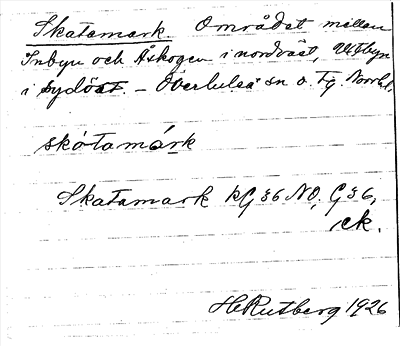 Skatamark. Området mellan
Inbyn och Åskogen i nordväst, Utbyn
i sydöst. – Överluleå sn o. tg. Norrb.
skåtamárk
Skatamark kG 36 NO, G 36,
ek.
H Rutberg 1926